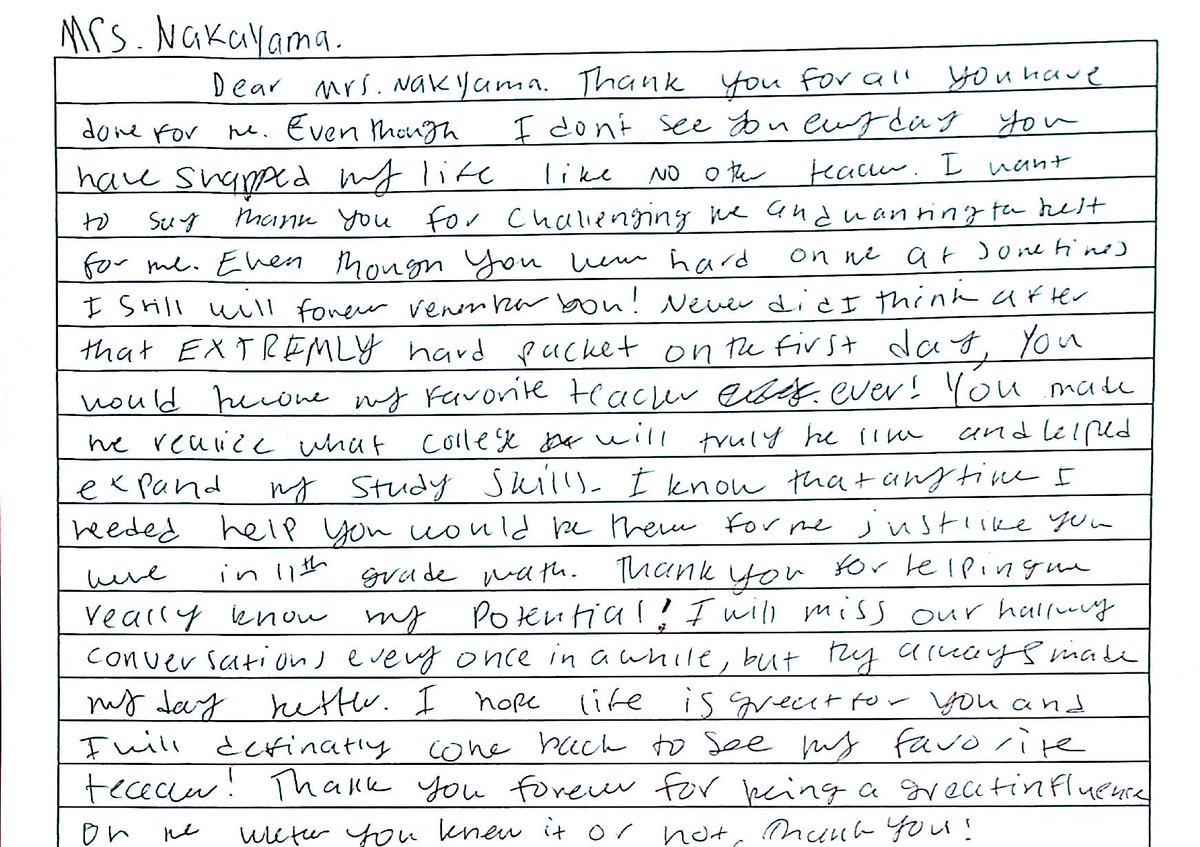 Mrs. Nakayama.
Dear Mrs. Nakyama. Thank you for all you have
done for me. Even though I don't see you everyday you
have shapped my life like no other teacher. I want
to say thank you for challenging me and wanting the best
for me. Even though you were hard on me at sometimes
I still will forever remember you! Never did I think after
that EXTREMLY hard packet on the first day, you
would become my favorite teacher ever! You made
me realize what college will truly be like and helped
expand my study skills. I know that anytime I
needed help you would be there for me just like you
were in 11th grade math. Thank you for helping me
really know my potential! I will miss our hallway
conversations every once in a while, but they always made
my day better. I hope life is great for you and
I will definatly come back to see my favorite
teacher! Thank you forever for being a great influence
on me wether you knew it or not. Thank you!